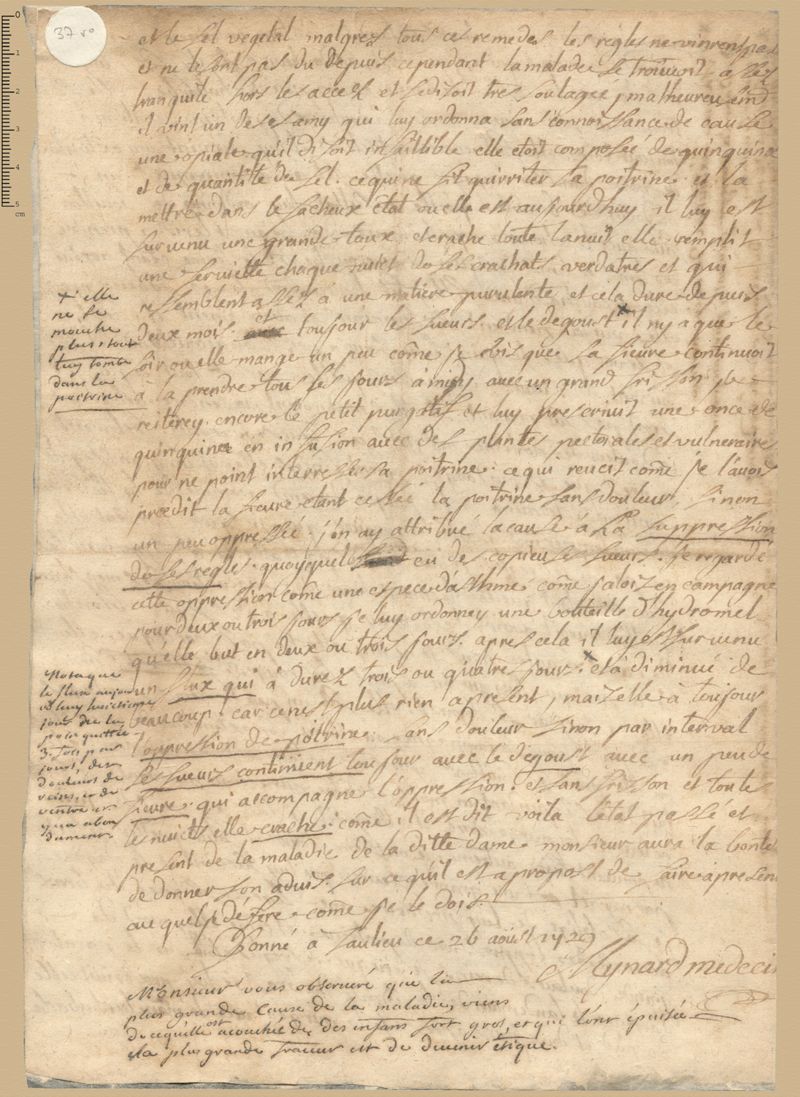 37 vo
et le sel vegetal malgrez tous ces remedes les règles ne vinrent pas
et ne le sont pas du depuis cependant la malade se trouvoit assez
tranquile hors les accez et se disoit tres soulagée, malheureusem
il vint un de ses amy qui luy ordonna sans connoissance de cause
une opiate qu'il disoit infaillible elle etoit composée de quinquina
et de quantité de sel. ce qui ne fit qu'irriter sa poitrine et la
mettre dans le facheux état ou elle est aujourdhuy il luy est
survenu une grande toux et crache toute la nuit elle remplit
une serviette chaque nuict de ses crachats verdatres et qui
ressemblent assez à une matière purulente et cela dure depuis
deux mois. et toujour les sueurs et le degoust x il ny a que le
soir ou elle mange un peu côme je vois que sa fievre continuoit
à la prendre tous les jours à midy avec un grand frisson je
reiterey encore le petit purgatif et luy prescrivit une once de
quinquina en infusion avec des plantes pectorales et vulneraires
pour ne point interresser sa poitrine. ce qui reucit come je l'avois
predit la fievre etant cessée la poitrine sans douleur, sinon
un peu oppressée. j'en ay attribué la cause à la suppression
de ses regles. quoyque eu des copieuses sueurs. je regarde
cette oppression côme une espece dasthme côme j'alois en campagne
pour deux ou trois jours je luy ordonney une bouteille d'hydromel
qu'elle but en deux ou trois jours. apres cela il luy est survenu
un flux qui à durez trois ou quatre jour. x et à diminué de
beaucoup. car ce n'est plus rien apresent, mais elle à toujour
l'oppression de poitrine. sans douleur sinon par interval
les sueurs continüent toujour avec le degoust avec un peu de
fievre qui accompagne l'oppression. et sans frisson et toute
les nuicts elle crache. côme il est dit voila l'état passé et
present de la maladie de la ditte dame. monsieur aura la bonté
de donner son advis sur ce qu'il est apropost de faire apresen
auquel je défère côme je le dois.
Donné à Saulieu ce 26 aoust 1729
Mynard medecin
x elle
ne se
mouche
plus tout
luy tombe
dans la
poitrine
Nota que
le flux
jour de la
3. fois par
jour, des
douleurs de
reins, et de
ventre et
Monsieur vous observeré que la
plus grande cause de la maladie, viens
de ce quille est acouchée de des infans fort gros, et qui l'ont épuisée
et la plus grande fraieur est de devenir étique.